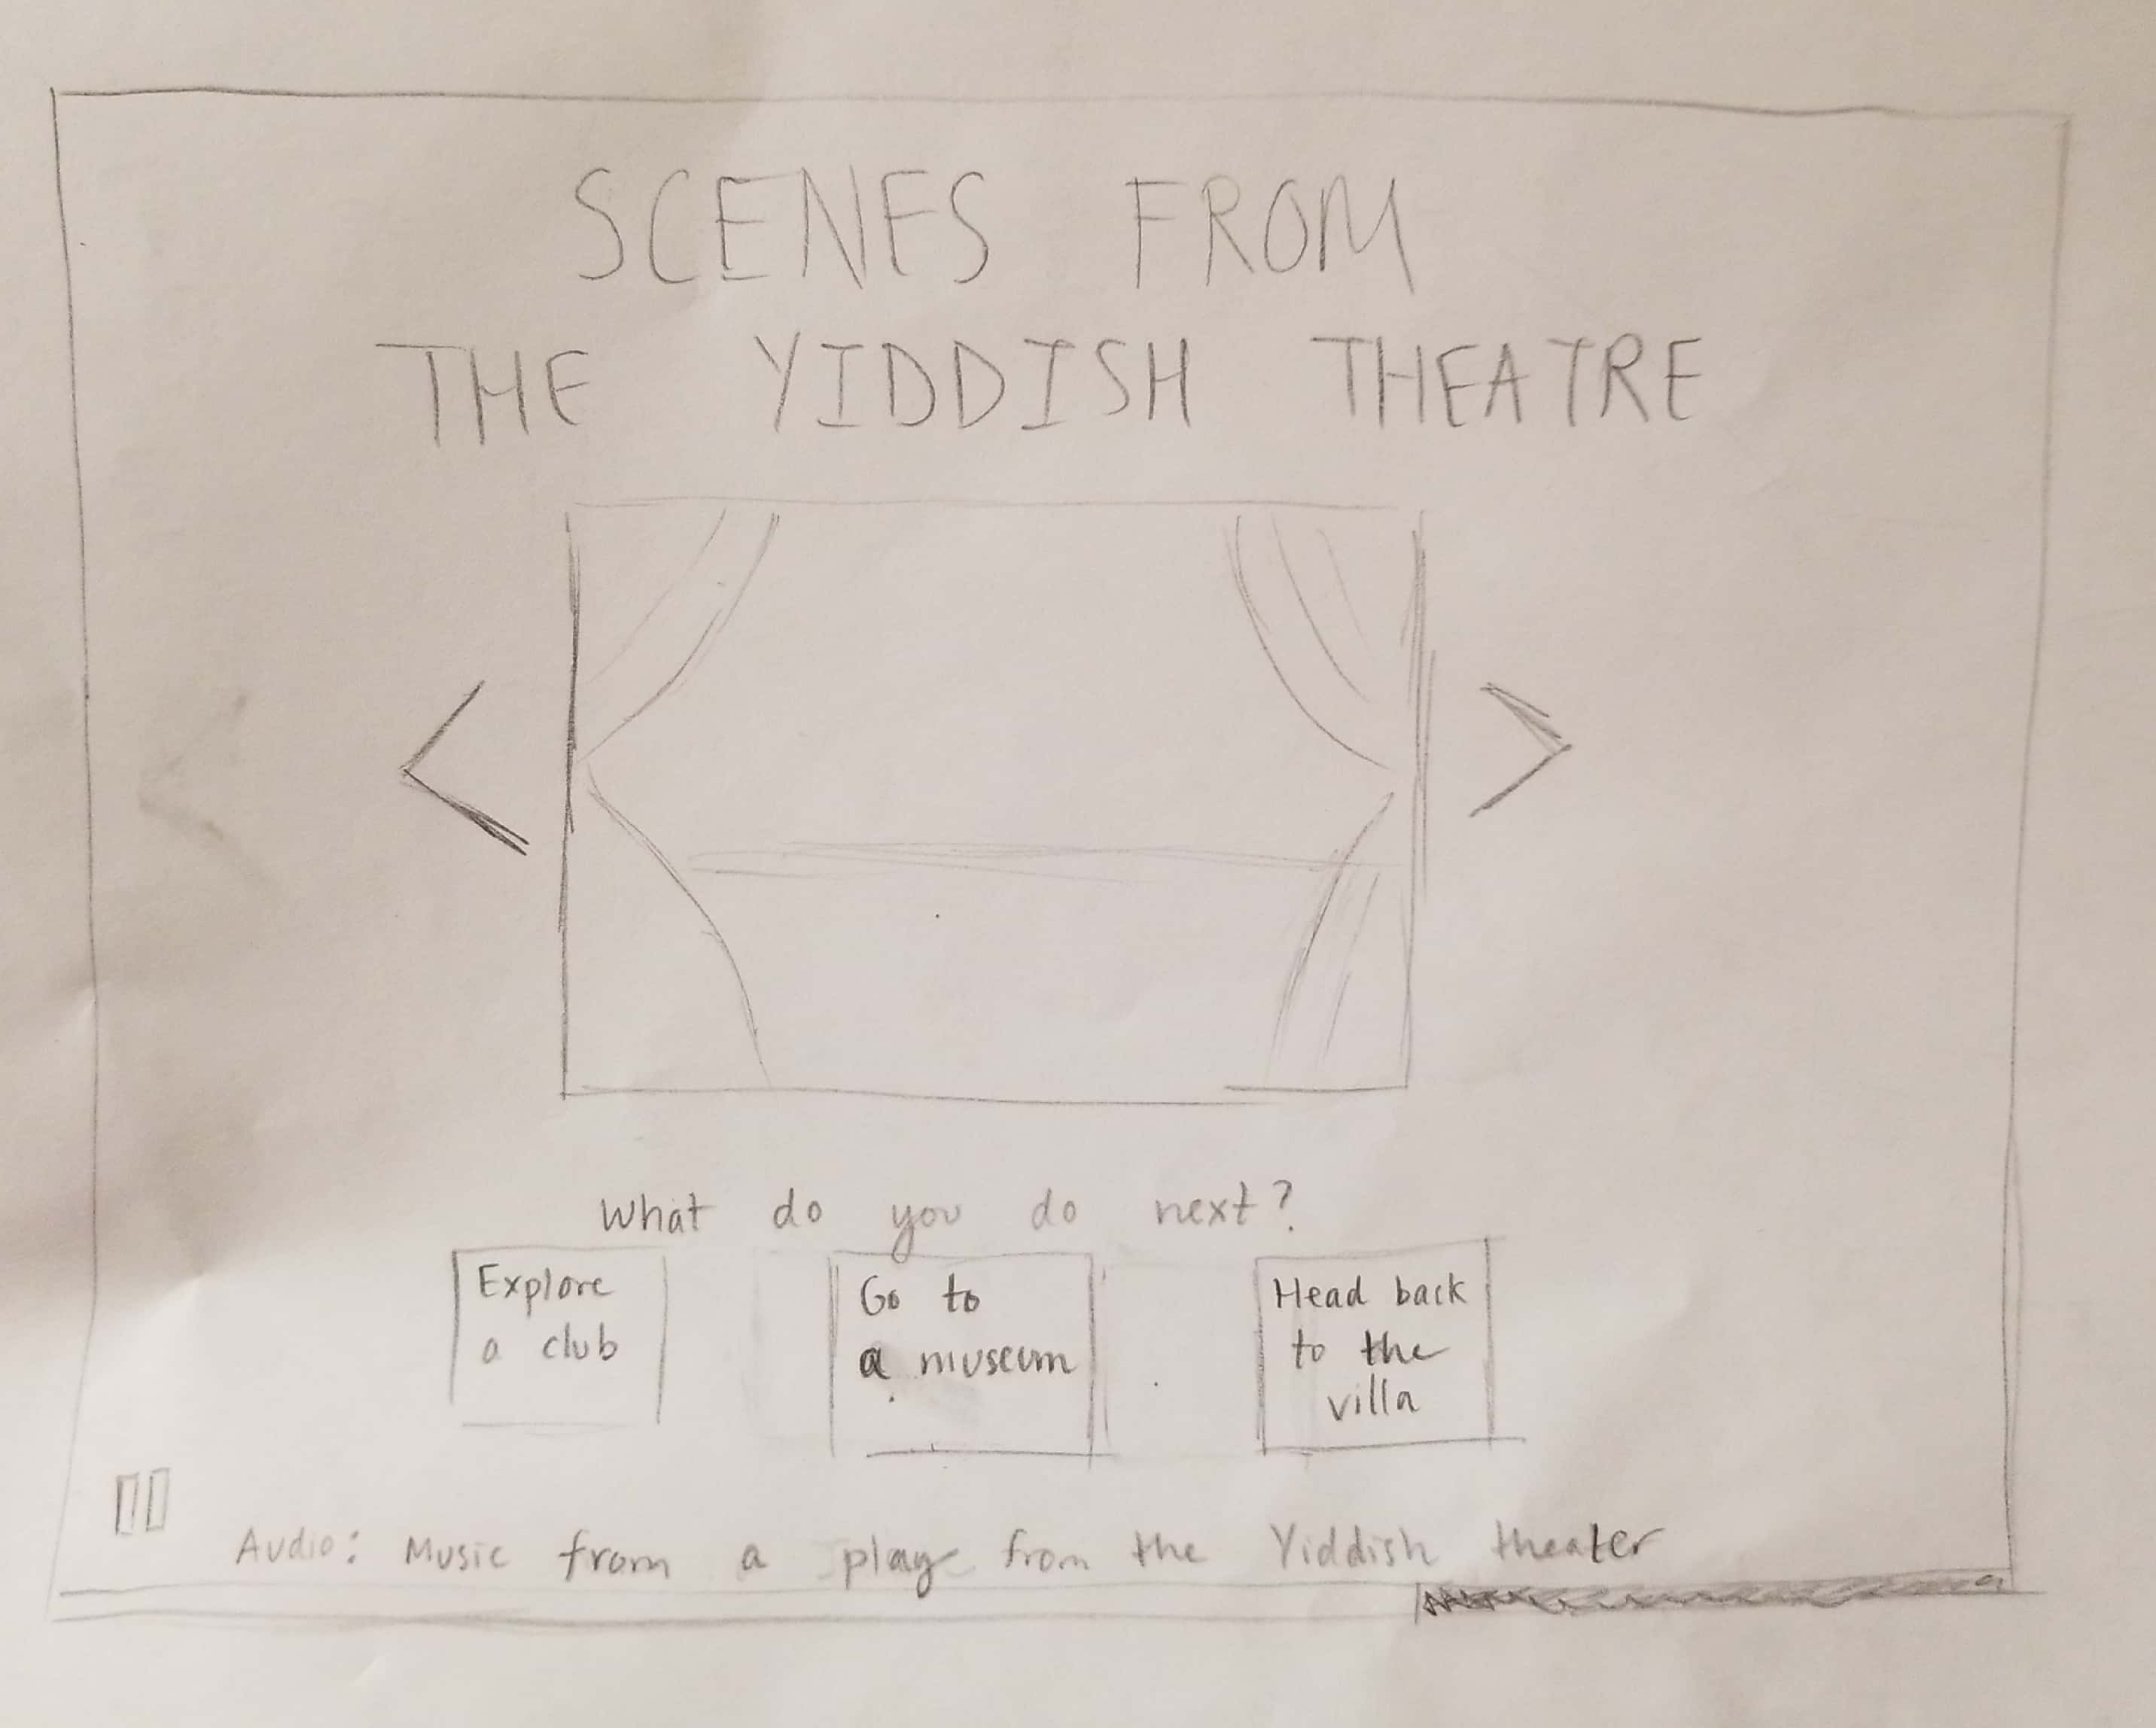 SCENES FROM
THE YIDDISH THEATRE
What do you do next?
Explore
a club
Go to
a museum
Head back
to the
villa
Audio: Music from a play from the Yiddish theater